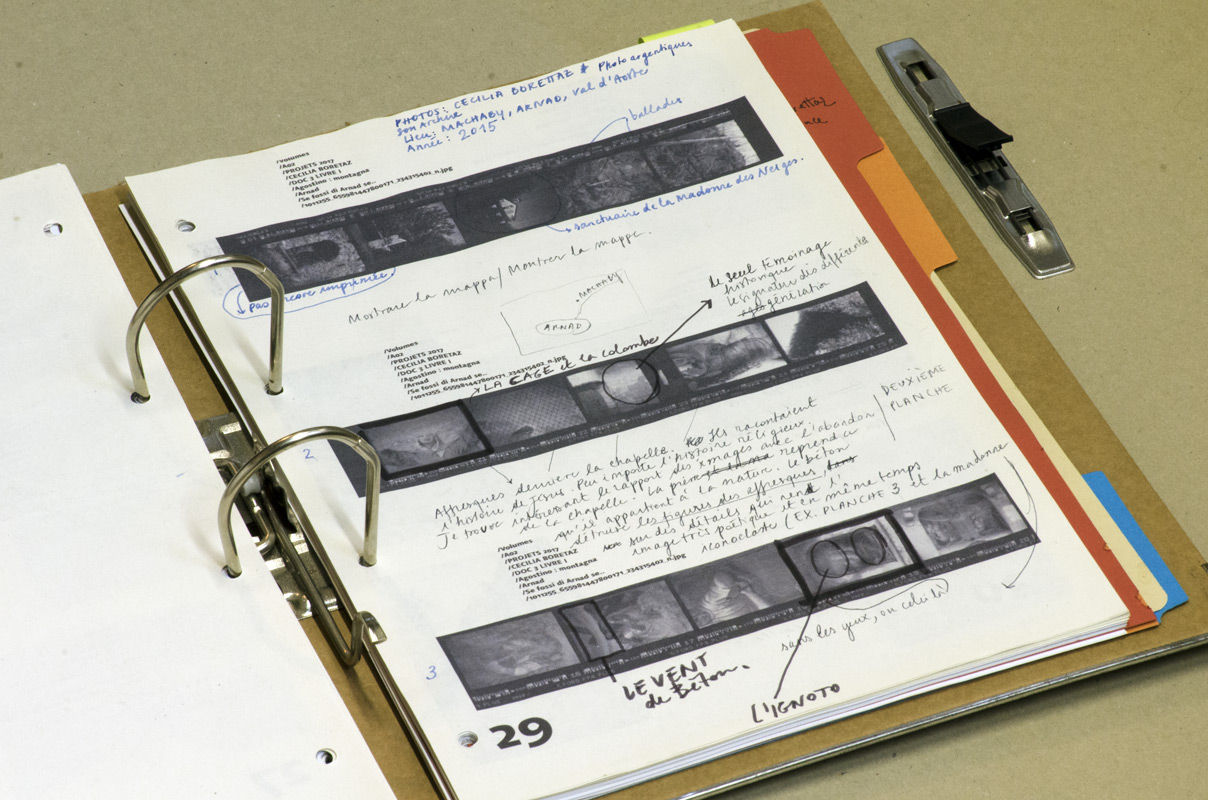 PHOTOS: CECILIA BORETTAZ & Photo argentiques
Son Archive
Lieu: MACHABY, ARNAD, Val d'Aoste
Année: 2015
/Volumes
/A02
/PROJETS 2017
/CECILIA BORETAZ
/DOC 3 LIVRE I
/Agostino : montagna
/Arnad
/Se fossi di Arnad se..
/1011255_655981447800171_234315402_n.jpg
ballades
sanctuaire de la Madonne des Neiges.
1
pas encore imprimée
Mostrare la mappa/Montrer la mappe.
MACHABY
ARNAD
le seul témoinage
historique
le signateur des différentes
génération
/Volumes
/A02
/PROJETS 2017
/CECILIA BORETAZ
/DOC 3 LIVRE I
/Agostino : montagna
/Arnad
/Se fossi di Arnad se..
/1011255_655981447800171_234315402_n.jpg
LA CAGE et la colombe
2
DEUXIÈME
PLANCHE
Affresques derrière la chapelle. Ils racontaient
l'histoire de Jesus. Peu importe l'histoire réligieux
Je trouve intéressant le rapport des images avec l'abandon
de la chapelle. La pierre reprend ce
qu'il appartient à la nature. Le béton
détruise les figures des affresques,
sur des détails qui rend l'
image très poétique et en même temps
iconoclaste (EX. PLANCHE 3 et la madonne
/Volumes
/A02
/PROJETS 2017
/CECILIA BORETAZ
/DOC 3 LIVRE I
/Agostino : montagna
/Arnad
/Se fossi di Arnad se..
/1011255_655981447800171_234315402_n.jpg
sans les yeux, ou celui là
3
LE VENT
de Béton.
L'IGNOTO
29